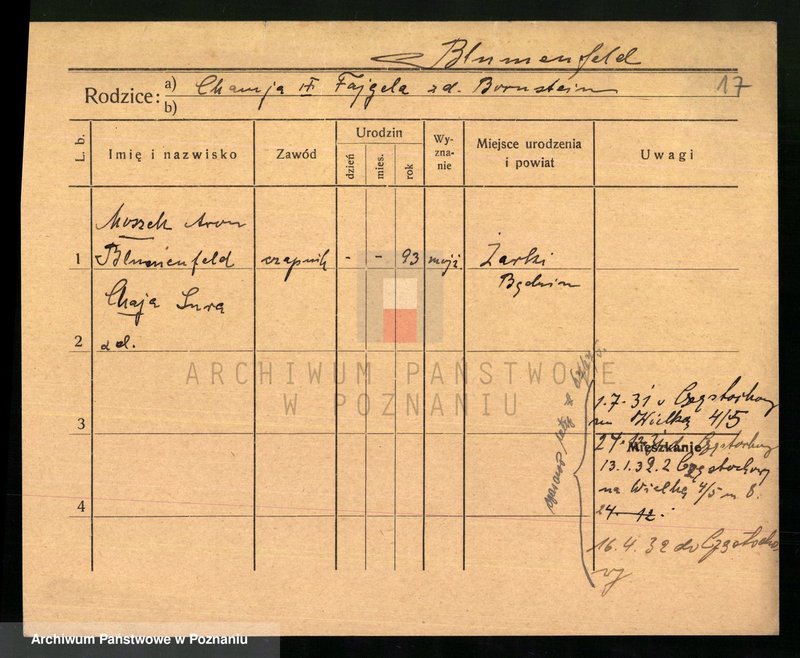 Blumenfeld
Rodzice: a) Chamja i Fajgela zd. Bornstein 17
b)
L. b.
Imię i nazwisko
Zawód
Urodzin
dzień
mies.
rok
Wy-
zna-
nie
Miejsce urodzenia
i powiat
Uwagi
Moszek Aron
1 Blumenfeld czapnik - - 93 mojż. Żarki
Będzin
Chaja Sura
2 zd.
3
4
1.7.31 z Częstochowy
na Wielką 4/5
Mieszkanie
13.1.32. z Częstochowy
na Wielką 4/5 m 8.
24. 12.
16.4.32 do Częstocho
wy
ARCHIWUM PAŃSTWOWE
W POZNANIU
Archiwum Państwowe w Poznaniu